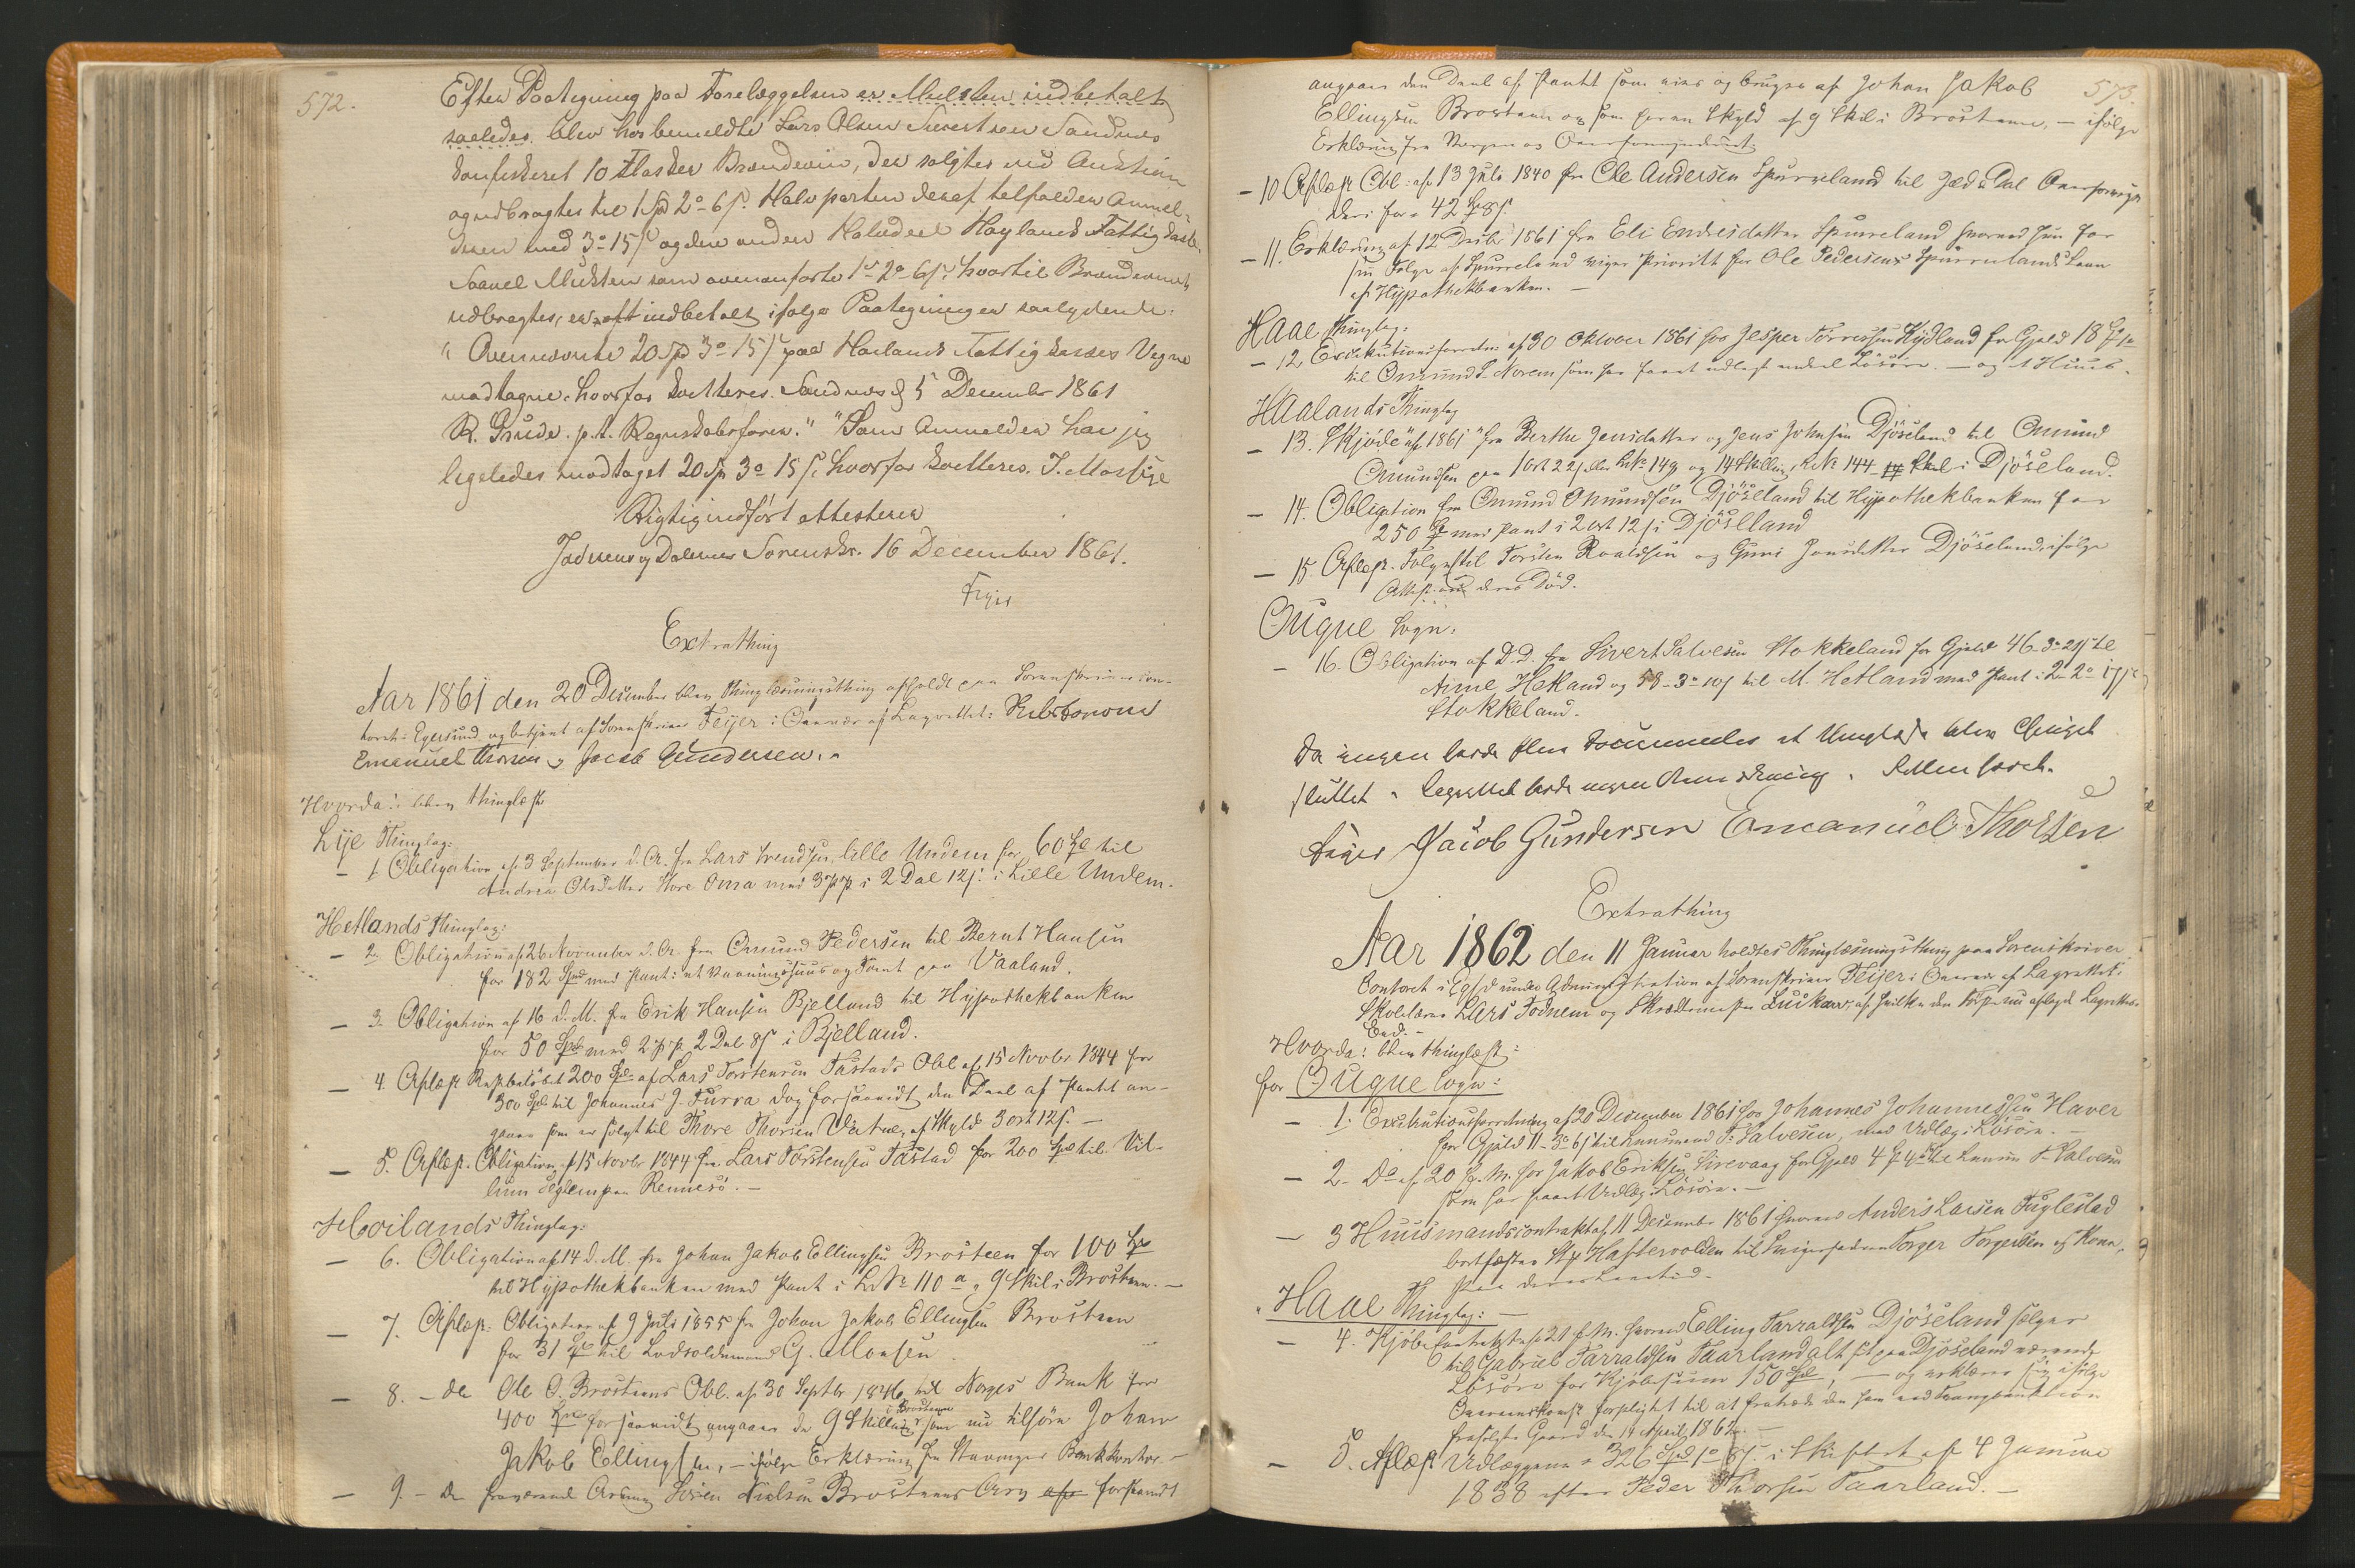 572.
Efter Paategning paa Forelæggelsen er Mulkten indbetalt
saaledes blev hos bemeldte Lars Olsen Sandnes
konfiskeret 10 Flasker Brændeviin, der solgtes ved Auktion
og udbragtes til 1 Spd 2 o 6 s. Halvparten deraf tilfalden Anmel-
deren med 3 o 15 s og den anden Halvdeel Høylands Fattigkasse.
Saavel Mulkten som ovenanførte 1 - 2 o 6 s, hvortil Brændevinet
udbragtes, er indbetalt ifølge Paategninger saalydende:
" Ovennævnte 20 Spd 3 o 15 s paa Høilands Fattigkasses Vegne
modtagne, hvorfor kvitteres. Sandnæs d 5 December 1861
R. Grude. p.t. Regnskabsfører." "Som Anmelder har jeg
ligeledes modtaget 20 Sp 3 o 15 s, hvorfor kvitteres. T. Mossige
Rigtig indført attesterer
Jæderens og Dalernes Sorenskr. 16 December 1861.
Feyer
Extrathing
Aar 1861 den 20 December blev Thinglæsningsthing afholdt paa Sorenskrivercon-
toret i Egersund og betjent af Sorenskriver Feyer i Overvær af Lagrettet:
Emanuel Thorsen og Jacob Gundersen.
Hvorda: blev thinglæst
Lye Thinglag:
- 1 Obligation af 3 September d. A. fra Lars Svendsen Lille Undem for 60 Spd til
Andrea Olsdatter Store Oma med 3 p p i 2 Dal 12 s. i Lille Undem.
Hetlands Thinglag:
- 2 Obligation af 26 November d. A. fra Omund Pedersen til Bernt Hansen
for 182 Spd med Pant i et Vaaningshuus og Tomt paa Vaaland.
- 3. Obligation af 16 d. M. fra Erik Hansen Bjelland til Hypothekbanken
for 50 Spd med 2 p p. 2 Dal 8 s i Bjelland.
- 4. Aflæst Restbeløbet 200 Spd af Lars Torstensen Tastads Obl af 15 Novbr 1844 for
300 Spd til Johannes J. Furra dog forsaavidt den Deel af Pantet an-
gaaer som er solgt til Thore Thorsen Vatne, af Skyld 3 ort 12 s. -
- 5. Aflæst. Obligation af 15 Novbr 1844 fra Lars Torstensen Tastad for 200 Spd til Vil-
lum paa Rennesø. -
Høilands Thinglag:
- 6. Obligation af 14 d. M. fra Johan Jakob Ellingsen Brosteen for 100 Spd
til Hypothekbanken med Pant i L. No 110 a, 9 Skil i Brosteen. -
- 7. Aflæst. Obligation af 9 Juli 1855 fra Johan Jakob Ellingsen Brosteen
for 31 Spd til Lodsoldermand G. Monsen.
- 8. - do Ole O. Brosteens Obl. af 30 Septbr 1846 til Norges Bank for
400 Spd forsaavidt angaaer de 9 Skilling i Brosteen som nu tilhøre Johan
Jakob Ellingsen, - ifølge Erklæring fra Stavanger Bankkontor. -
- 9. - do Søren Nielsen Brosteens Arv forsaavidt
573.
angaaer den Deel af Pantet som eies og bruges af Johan Jakob
Ellingsen Brosteen og som har en Skyld af 9 Skil i Brosteen, - ifølge
Erklæring fra Værgen og Overformynderiet.
- 10 Aflæst Obl: af 13 Juli 1840 fra Ole Andersen Spurreland til Jæd & Dal Overformyn-
deri for 42 Sp 8 s.
- 11. Erklæring af 12 Decbr 1861 fra Eli Endresdatter Spurreland hvorved hun for
sin Folge af Spurreland viger Prioritet for Ole Pedersens Spurrelands Laan
af Hypothekbanken. -
Haae Thinglag:
- 12. Executionsforretn: af 30 Oktober 1861 hos Jesper Torressen Hydland for Gjæld 18 Sp 1 o
til Omund S. Norem som har faaet udlagt endeel Løsøre. - og et Huus.
Haalands Thinglag
- 13. Skjøde af 1861 fra Berthe Jensdatter og Jens Johnsen Djøseland til Omund
Omundsen paa 1 ort 22 s Lb. No 149 og 14 Skilling, L. No 144 i Djøseland.
- 14. Obligation fra Omund Omundsen Djøseland til Hypothekbanken for
250 Spd med Pant i 2 ort 12 s i Djöselland
- 15. Aflæst. Folge til Torsten Roaldsen og Guri Jonsdatter Djøseland, ifølge
Attest om deres Død.
Ougne Sogn:
- 16. Obligation af D.D. fra Sivert Salvesen Stokkeland for Gjæld 46 - 3 o 21 s til
Anne Hetland og 58 - 3 o 10 s til M. Hetland med Pant i 2 - 2 o 17 s i
Stokkeland.
Da ingen havde flere Documenter at thinglæse blev Thinget
sluttet. Lagrettet havde ingen Anmærkning.
Feyer Jacob Gundersen Emanuel Thorsen
Extrathing
Aar 1862 den 11 Januar holdtes Thinglæsningsthing paa Sorenskriver
Contoret i Egersd under Administration af Sorenskriver Feijer i Overvær af Lagrettet:
Skolelærer Lars Todnem og Skræddermester af hvilke den første nu aflagde Lagrettes-
Eed. -
Hvorda: blev thinglæst:
for Ougne Sogn:
- 1. Executionsforretning af 20 December 1861 hos Johannes Johannessen Haver
for Gjæld 11 - 3 o 6 s til Lensmand T. Salvesen, med Udlæg i Løsøre. -
- 2 - Do af 20 s. M. hos Jakob Eriksen Sirevaag for Gjæld 4 Sp 4 o til Lensm T. Salvesen
som har faaet Udlæg i Løsøre. -
- 3 Huusmandscontract af 11 December 1861 hvorved Anders Larsen Fuglestad
bortfæster Haftevolden til Torger Torgersen og Kone,
paa deres Levetid. -
Haae Thinglag: -
- 4. Kjøbekontrakt af 21 f. M. hvorved Elling Tarraldsen Djøseland sælger
til Gabriel Tarraldsen Taarland alt sit paa Djøseland værende
Løsøre for Kjøbesum 150 Spd, - og erklærer sig ifølge
Overenskomst forpligtet til at fratræde den ham ved Tvangsauktion
frasolgte Gaard den 14 April 1862. -
- 5. Aflæst Udlæggene 326 Spd 1 o 6 s. i Skiftet af 4 Januar
1838 efter Peder Thorsen Taarland. -